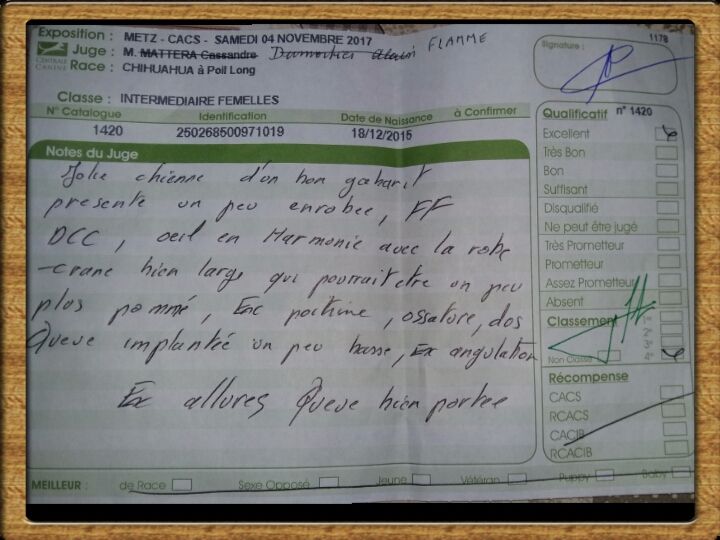 Exposition : METZ - CACS - SAMEDI 04 NOVEMBRE 2017
Juge : M. MATTERA Cassandre Damottier Alain FLAMME
Race : CHIHUAHUA à Poil Long
CENTRALE CANINE
Signature :
1178
Classe : INTERMEDIAIRE FEMELLES
N° Catalogue Identification Date de Naissance à Confirmer
1420 250268500971019 18/12/2015
Notes du Juge
Jolie chienne d'un bon gabarit
presente un peu enrobee, FF
DCC, oeil en Harmonie avec la robe
-crane bien large qui pourrait etre un peu
plus pommé, Exc poitrine, ossature, dos
Queue implantée un peu basse, Ex angulation
Ex allures Queue bien portee
Qualificatif n° 1420
Excellent
Très Bon
Bon
Suffisant
Disqualifié
Ne peut être jugé
Très Prometteur
Prometteur
Assez Prometteur
Absent
Classement
1°
2°
3°
4°
Non Classé
Récompense
CACS
RCACS
CACIB
RCACIB
MEILLEUR : de Race Sexe Opposé Jeune Vétéran Puppy Baby